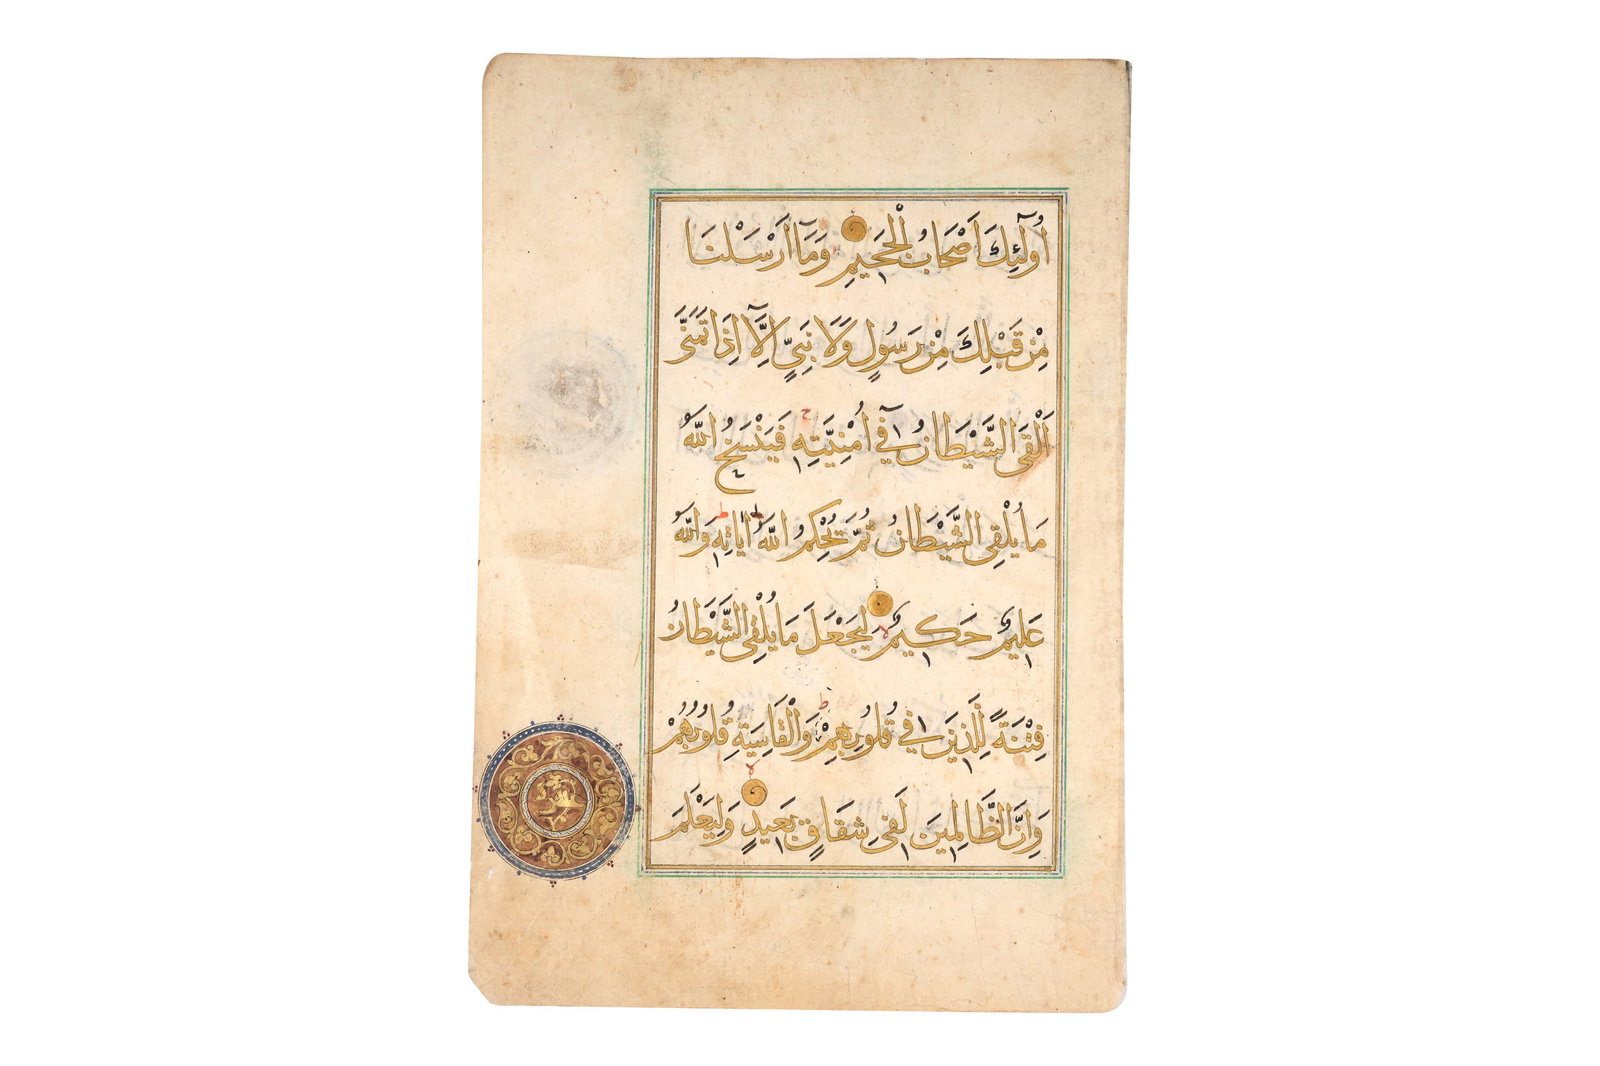 اُولَٓئِكَ اَصْحَابُ الْجَحِيمِ وَمَٓا اَرْسَلْنَا
مِنْ قَبْلِكَ مِنْ رَسُولٍ وَلَا نَبِيٍّ اِلَّٓا اِذَا تَمَنَّى
اَلْقَى الشَّيْطَانُ فِٓي اُمْنِيَّتِهِ فَيَنْسَخُ اللّٰهُ
مَا يُلْقِي الشَّيْطَانُ ثُمَّ يُحْكِمُ اللّٰهُ اٰيَاتِهِ وَاللّٰهُ
عَلِيمٌ حَكِيمٌ لِيَجْعَلَ مَا يُلْقِي الشَّيْطَانُ
فِتْنَةً لِلَّذِينَ فِي قُلُوبِهِمْ وَالْقَاسِيَةِ قُلُوبُهُمْ
وَاِنَّ الظَّالِمِينَ لَفِي شِقَاقٍ بَعِيدٍ وَلِيَعْلَمَ